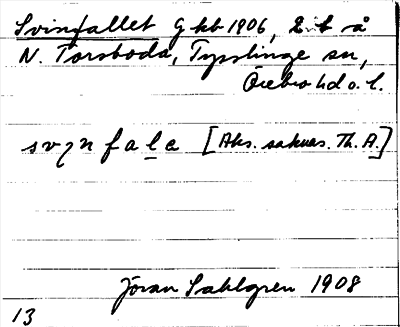 Svinfallet G kb 1906, 2 t å
N. Torsboda, Tysslinge sn,
Örebro hd o. l.
svɿnfale [Aks. saknas. Th. A.]
Jöran Sahlgren 1908
13